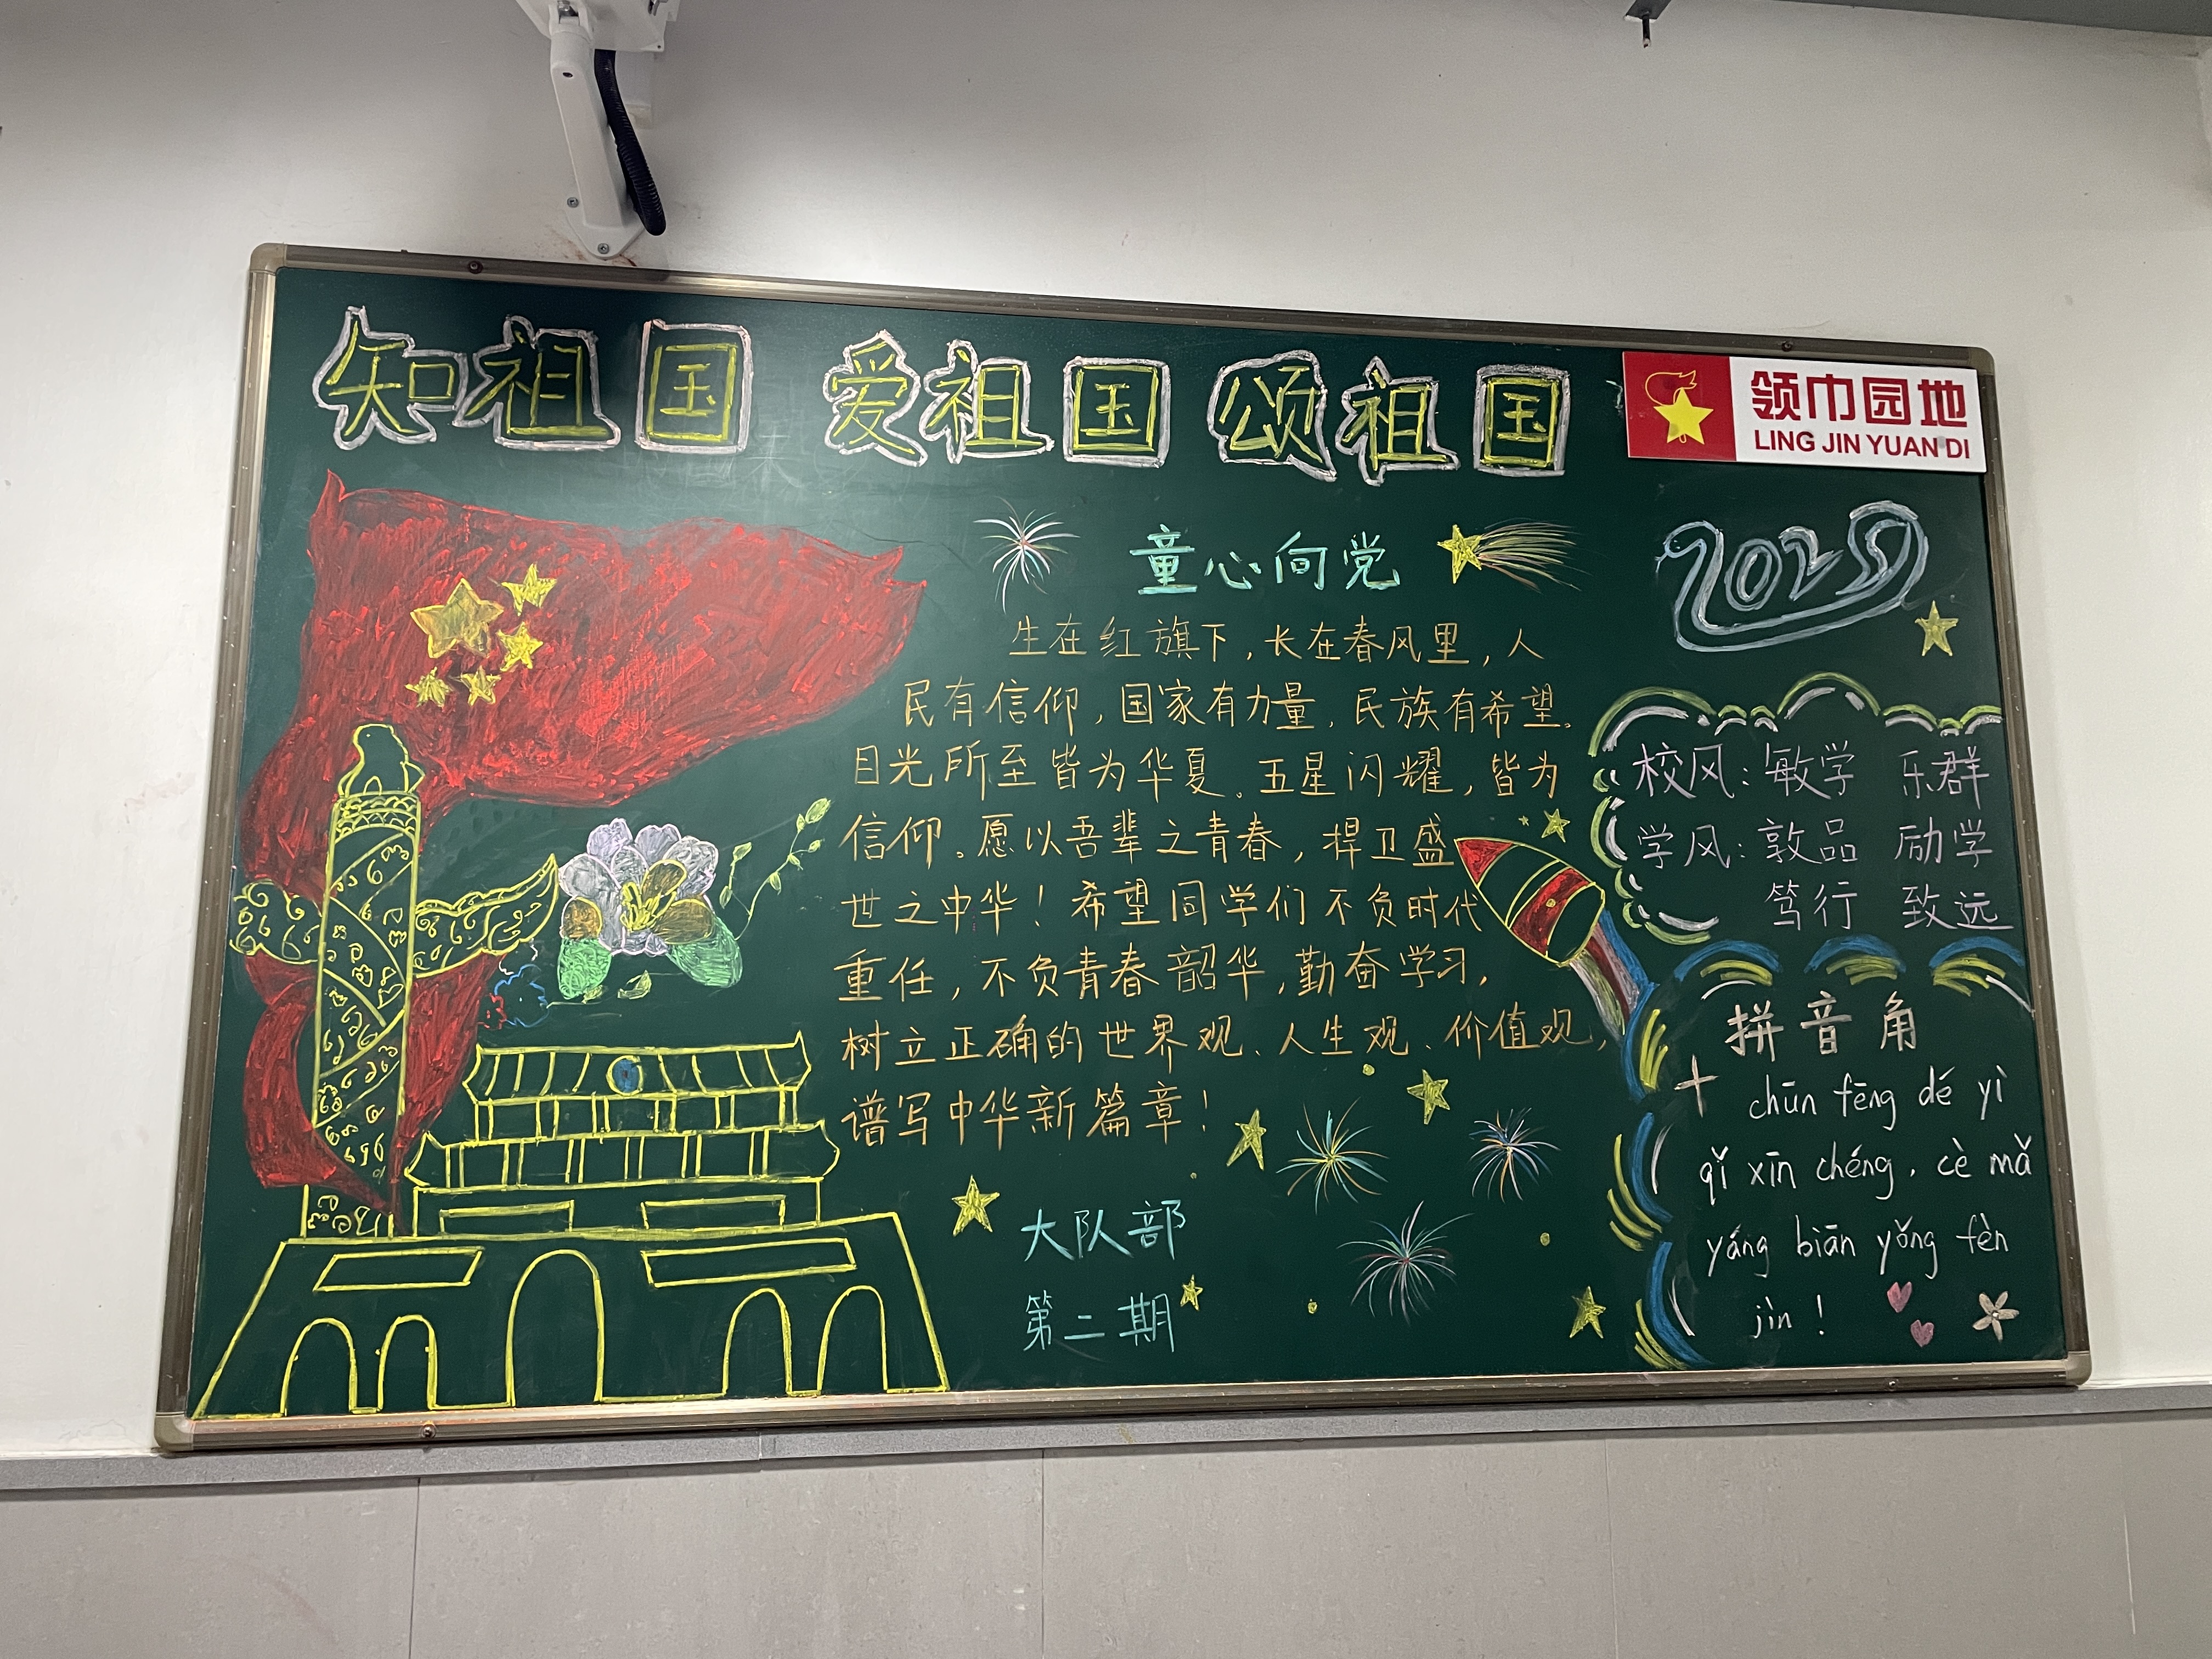 知祖国 爱祖国 颂祖国
领巾园地
LING JIN YUAN DI
童心向党
生在红旗下,长在春风里,人
民有信仰,国家有力量,民族有希望。
目光所至皆为华夏。五星闪耀,皆为
信仰。愿以吾辈之青春,捍卫盛
世之中华!希望同学们不负时代
重任,不负青春韶华,勤奋学习,
树立正确的世界观、人生观、价值观,
谱写中华新篇章!
大队部
第二期
2025
校风:敏学 乐群
学风:敦品 励学
笃行 致远
拼音角
chūn fēng dé yì
qǐ xīn chéng, cè mǎ
yáng biān yǒng fèn
jìn!